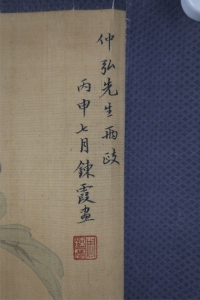 仲弘先生兩政
丙申七月鍊霞画